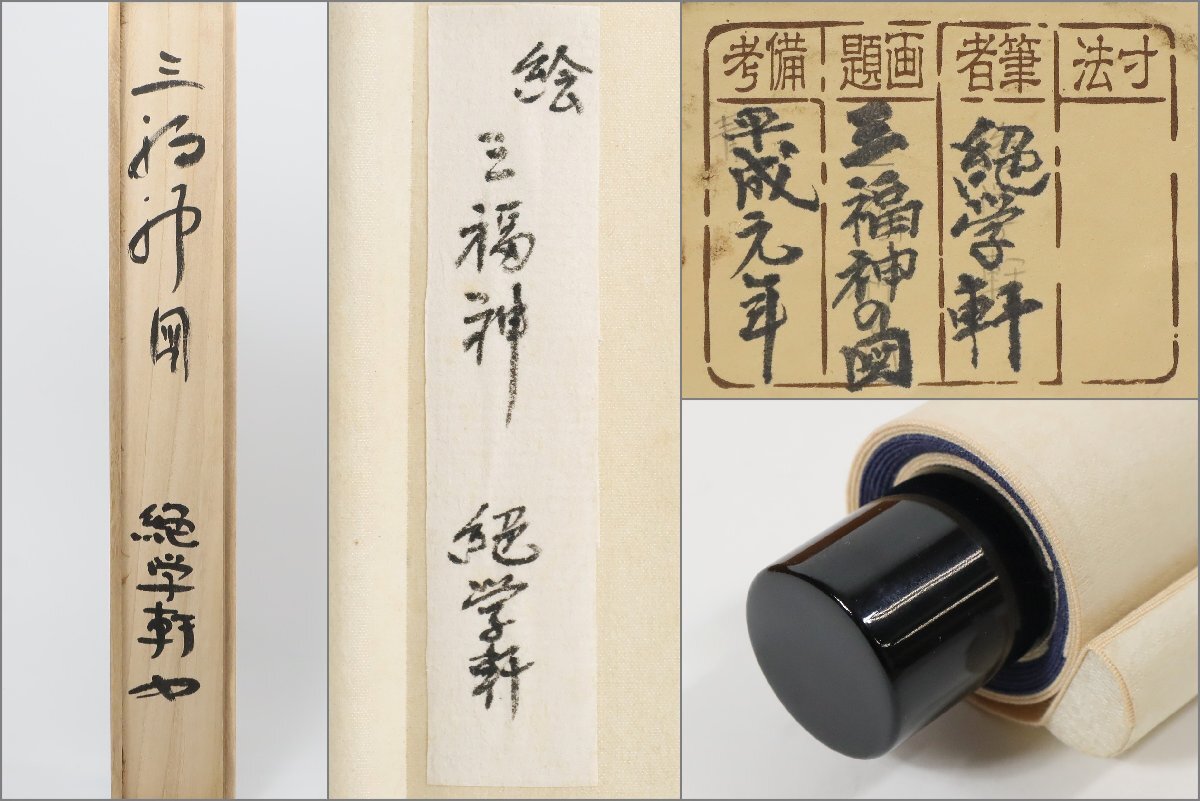 三福神図
絶学軒
絵
三福神
絶学軒
寸法
筆者
絶学軒
画題
三福神の図
備考
平成元年